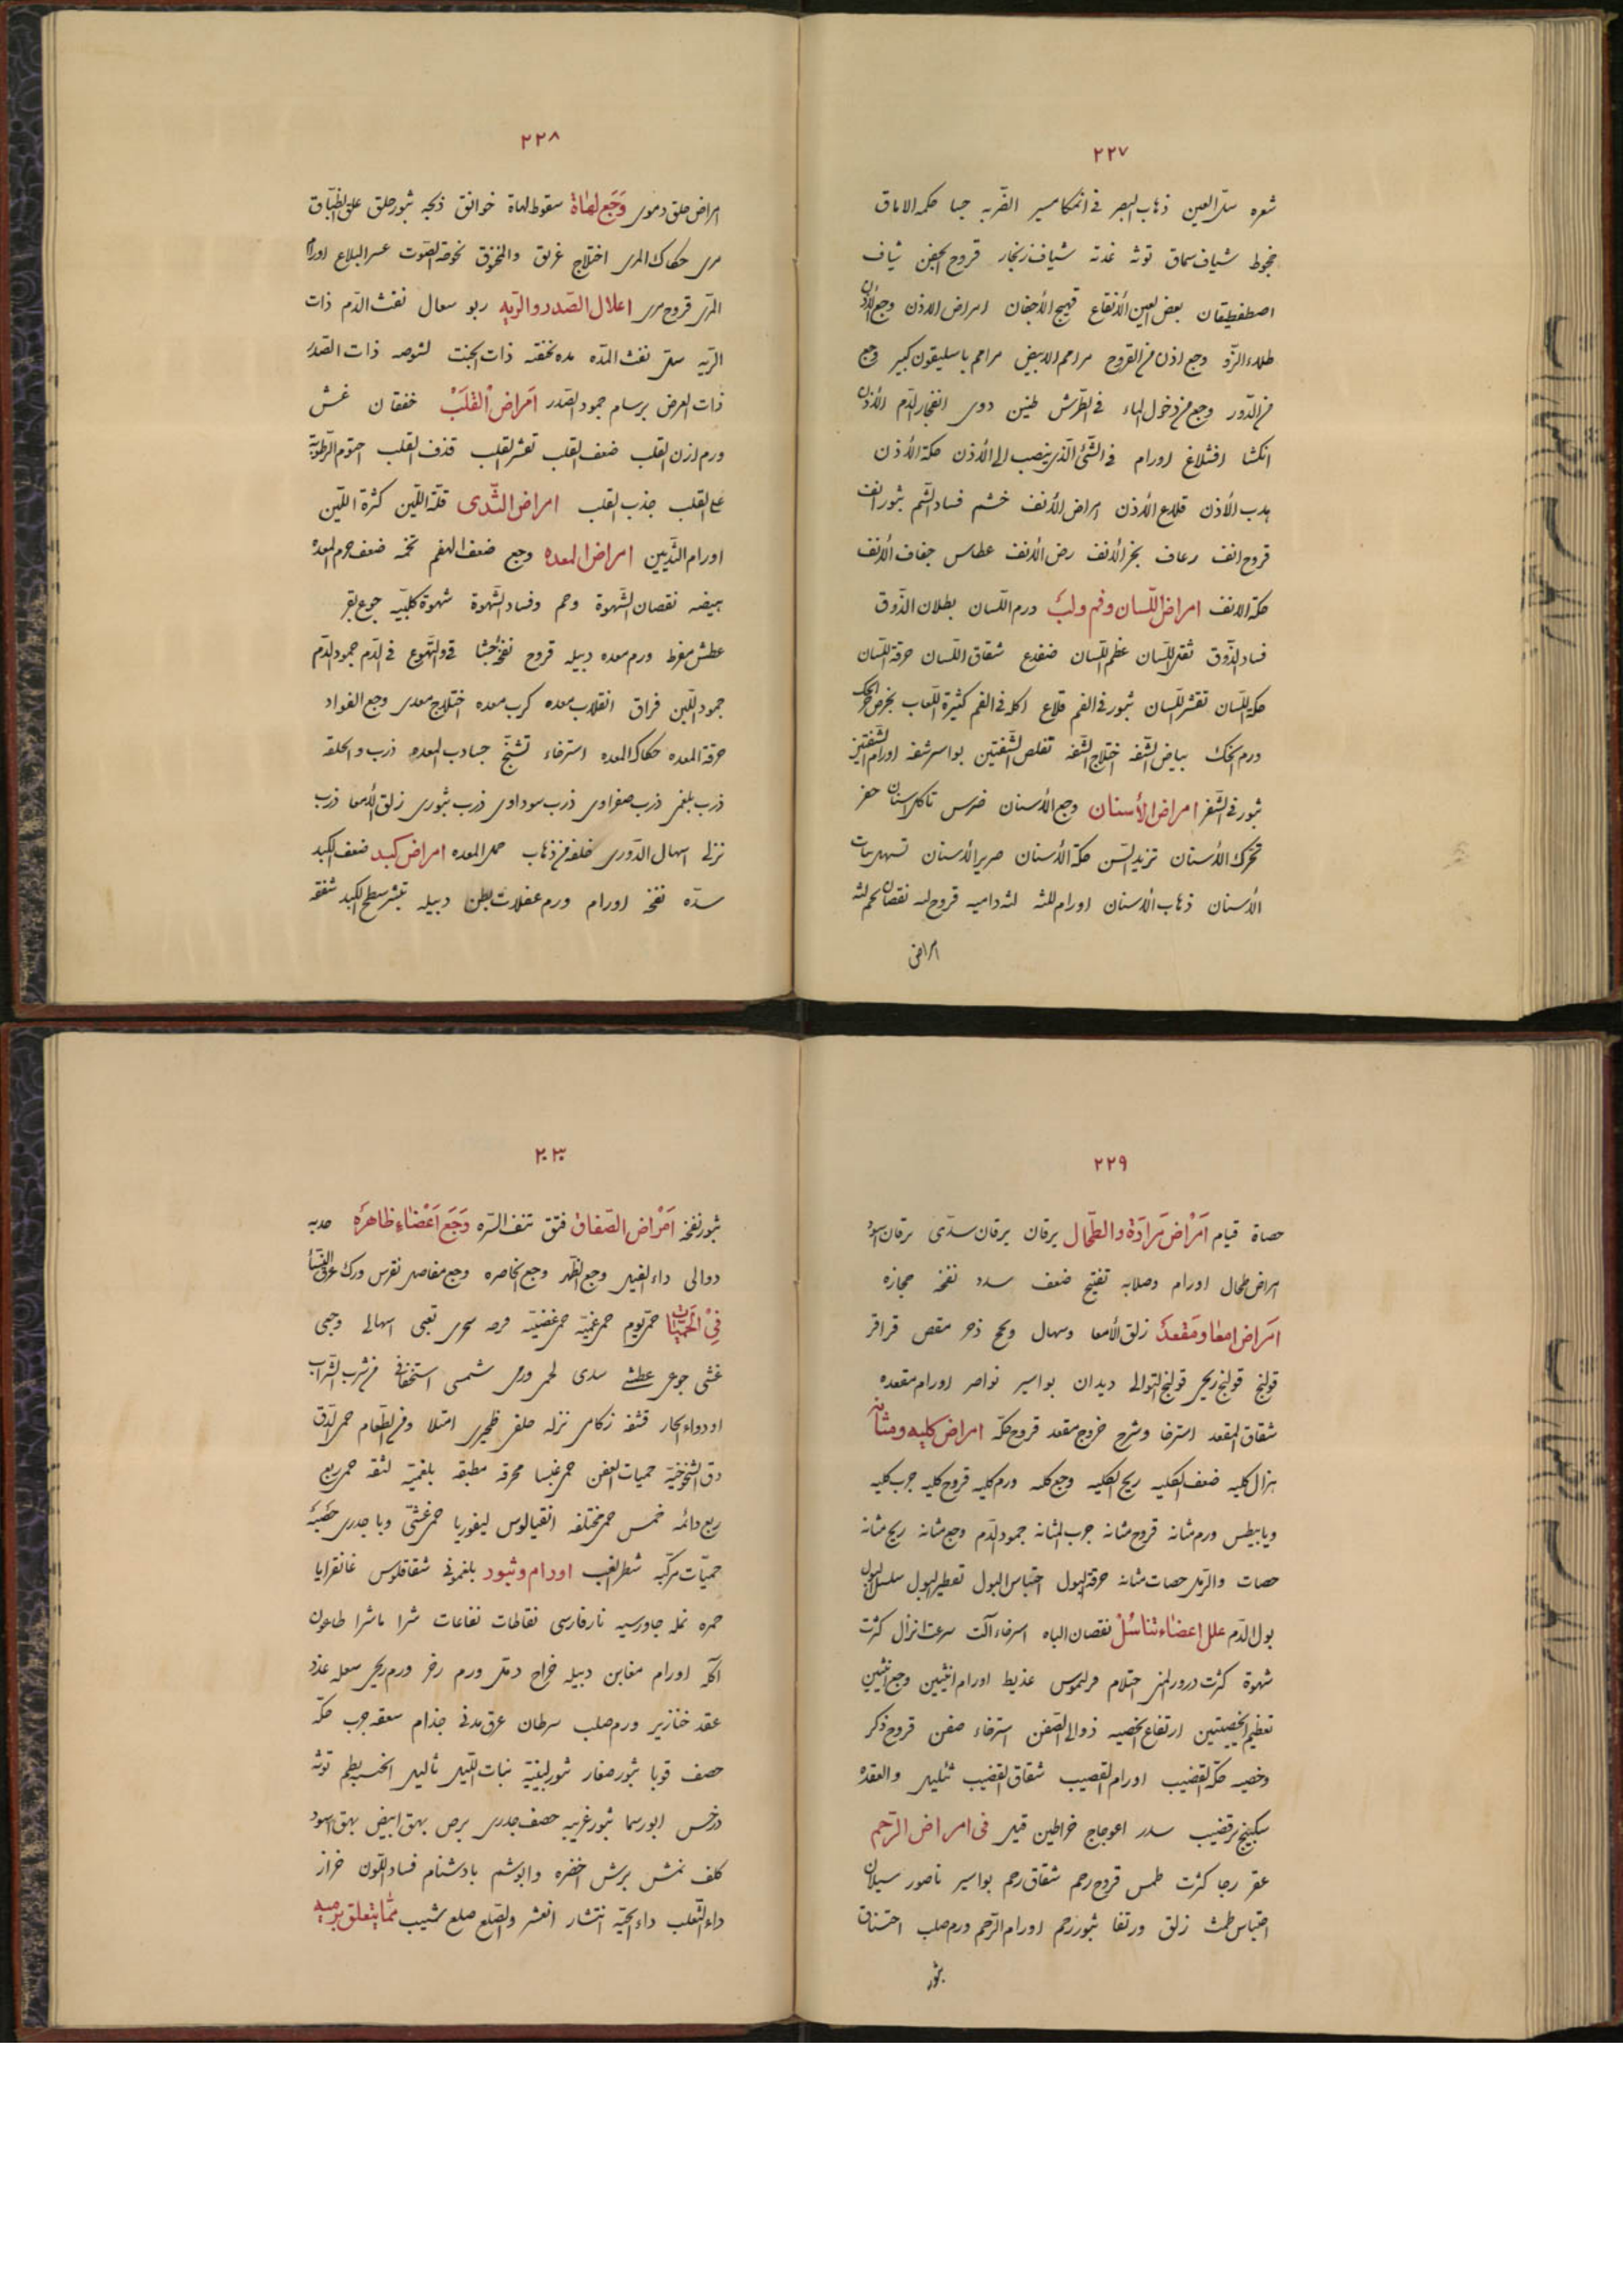 ٢٢٧
شعره سل العين ذهاب البصر فى انمكاسير القربه جسا حكه الاماق
جحوظ شياف سماق توثه غدة شياف زنجار قروح الجفن شياف
اصطفطيقان بعض العين الأنفاع تهيج الأجفان امراض الاذن وجع الأذن
طلاء الزو وجع اذن من القروح مراهم الابيض مراهم باسليقون كبير وجع
من الدور وجع من دخول الماء فى الطرش طنين دوى انفجار الدم الأذن
انكسا افشلاغ اورام فى الشئ الذى ينصب الى الأذن حكة الأذن
هدب الأذن قلاع الأذن امراض الأنف خشم فساد الشم بثور انف
قروح انف رعاف بخر الانف رض الانف عطاس جفاف الانف
حكة الانف امراض اللسان وفم ولب ورم اللسان بطلان الذوق
فساد الذوق ثقل اللسان عظم اللسان ضفدع شقاق اللسان حرقة اللسان
حكة اللسان تقشر اللسان بثور فى الفم قلاع اكله فى الفم كثيرة اللعاب بخر
ورم الحنك بياض الشفه اختلاج الشفه تقلص الشفتين بواسر شفه اورام الشفتين
بثور فى الشفر امراض الأسنان وجع الأسنان ضرس تاكل اسنان حفر
تحرك الأسنان تزيد السن حكة الأسنان صرير الأسنان تسهيل نبات
الأسنان ذهاب الأسنان اورام للثه لثه داميه قروح لثه نقصان لحم لثه
امراض
٢٢٨
امراض حلق دموى وَجَع لهاة سقوط لهاة خوانق ذبحه بثور حلق علق اطباق
مرى حكاك المرى اختلاج غرق والمخنوق بحوحة الصوت عسر البلاع اورام
المرى قروح مرى اعلال الصدر والريه ربو سعال نفث الدم ذات
الريه سل نفث المده مده محتقنه ذات الجنب لشوصه ذات الصدر
ذات العرض برسام جمود الصدر امراض القلب خفقان غشى
ورم اذن القلب ضعف القلب تقشر القلب قذف القلب احتوم الرطوبة
على القلب جذب القلب امراض الثدى قلة اللبن كثرة اللبن
اورام الثديين امراض المعده وجع ضعف الهضم تخمه ضعف جرم المعده
هيضه نقصان الشهوة وحم وفساد الشهوة شهوة كلبيه جوع بقر
عطش مفرط ورم معده دبيله قروح نفخ جشا قى والتهوع قى الدم جمود الدم
جمود اللبن فراق انقلاب معده كرب معده اختلاج معدى وجع الفواد
حرقة المعده حكاك المعده استرخاء تشنج جساوب المعده ذرب والحلقه
ذرب بلغمى ذرب صفراوى ذرب سوداوى ذرب بثورى زلق الأمعا ذرب
نزلى اسهال الدورى خلفه من ذهاب خمل المعده امراض كبد ضعف الكبد
سدّه نفخه اورام ورم عضلات بطن دبيله تبثر سطح الكبد شقفه
٢٢٩
حصاة قيام اَمْراض مَرارَة والطّحال يرقان يرقان سدّى يرقان اسود
امراض طحال اورام وصلابه تفتيح ضعف سدد نفخه حجازه
امراض امعا ومقعد زلق الأمعا وسهال وسحج زحر مغص قراقر
قولنج قولنج ريحى قولنج التوالى ديدان بواسير نواصر اورام مقعده
شقاق المقعد استرخا وشرج خروج مقعد قروح حكه امراض كليه ومثانه
هزال كليه ضعف الكليه ريح الكليه وجع كليه ورم كليه قروح كليه جرب كليه
ديابيطس ورم مثانه قروح مثانه جرب المثانه جمود الدم وجع مثانه ريح مثانه
حصات والرمل حصات مثانه حرقة البول احتباس البول تقطير البول سلسل البول
بول الدم علل اعضاء تناسل نقصان الباه استرخاء آلت سرعت انزال كثرت
شهوة كثرت درور المنى احتلام فرليموس عذيط اورام انثيين وجع انثيين
تعظيم الخصيتين ارتفاع الخصيه دوالى الصفن استرخاء صفن قروح ذكر
وخصيه حكة القضيب اورام القضيب شقاق القضيب ثاليل والعقده
سكبينج قضيب سدر اعوجاج خراطين قيل فى امراض الرحم
عقر رجا كثرت طمس قروح رحم شقاق رحم بواسير ناصور سيلان
احتباس طمث زلق ورتقا بثور رحم اورام الرحم ورم صلب اختناق
بثور
٢٣٠
بثور نفخه اَمْراض الصّفاق فتق تنف السره وَجَع اَعْضاء ظاهره حدبه
دوالى داء الفيل وجع الظهر وجع الخاصره وجع مفاصل نقرس ورك عرق النسا
فِى الحُمّيات حمى يوم حمى غميّه حمى غضبيّه فرحه سحرى تعبى اسهالى وجعى
غشى جوعى عطشى سدى لحمى ورمى شمسى استحقانى من شرب الشراب
او دواء الحار قشفه زكامى نزله حلقى ظهيرى امتلا ومن الطعام حمى الدق
دق الشيخوخية حميات العفن حمى غبسا محرقه مطبقه بلغميّه لثقه حمى ربع
ربع دائمه خمس حمى مختلفه انفيالوس ليفوريا حمى غشى وبا جدرى حصبه
حميات مركبه شطر الغب اورام وثبور بلغمونى شقاقلوس غانغرايا
حمره نمله جاورسيه نار فارسى نفاطات نفاعات شرا ماشرا طاعون
آكله اورام مغابن دبيله خراج دمل ورم رخو ورم ريحى سعله غدد
عقد خنازير ورم صلب سرطان عرق مدنى جذام سعفه جرب حكه
حصف قوبا بثور صغار بثور لبنيّة نبات الليل ثاليل الخسيبطم توثه
درخس ابورسما بثور غريبه حصف جدرى برص بهق ابيض بهق اسود
كلف نمش برش اخضره وابوشم بادشنام فساد اللون خراز
داء الثعلب داء الحيّه انتشار انعشر والصلع صلع شيب ممّا يتعلق